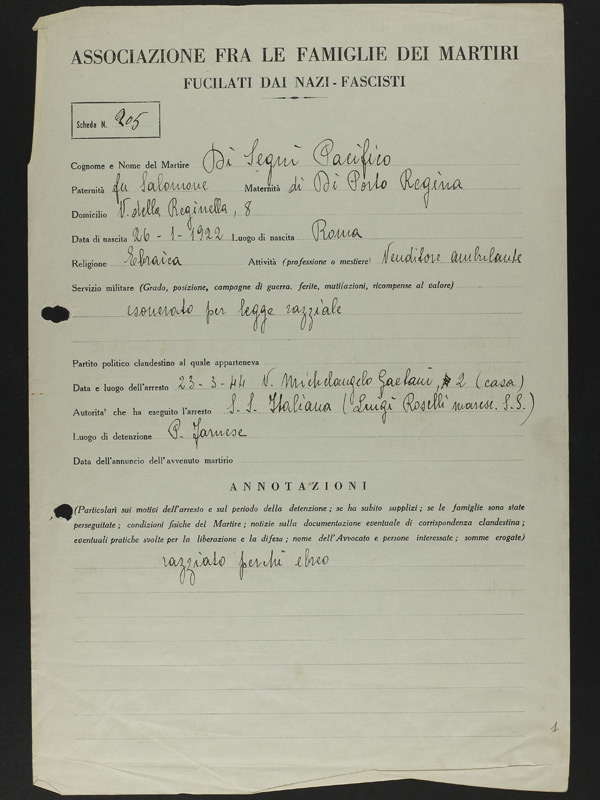 ASSOCIAZIONE FRA LE FAMIGLIE DEI MARTIRI
FUCILATI DAI NAZI-FASCISTI
Scheda N. 205
Cognome e Nome del Martire Di Segni Pacifico
Paternità fu Salomone Maternità di Di Porto Regina
Domicilio V. della Reginella, 8
Data di nascita 26-1-1922 Luogo di nascita Roma
Religione Ebraica Attività (professione o mestiere) Venditore ambulante
Servizio militare (Grado, posizione, campagne di guerra, ferite, mutilazioni, ricompense al valore)
esonerato per legge razziale
Partito politico clandestino al quale apparteneva
Data e luogo dell'arresto 23-3-44 V. Michelangelo Gaetani, 2 (casa)
Autorita' che ha eseguito l'arresto S. S. Italiana (Luigi Roselli maresc. S.S.)
Luogo di detenzione P. Farnese
Data dell'annuncio dell'avvenuto martirio
ANNOTAZIONI
(Particolari sui motivi dell'arresto e sul periodo della detenzione; se ha subito supplizi; se le famiglie sono state
perseguitate; condizioni fisiche del Martire; notizie sulla documentazione eventuale di corrispondenza clandestina;
eventuali pratiche svolte per la liberazione e la difesa; nome dell'Avvocato e persone interessate; somme erogate)
razziato perchè ebreo
1